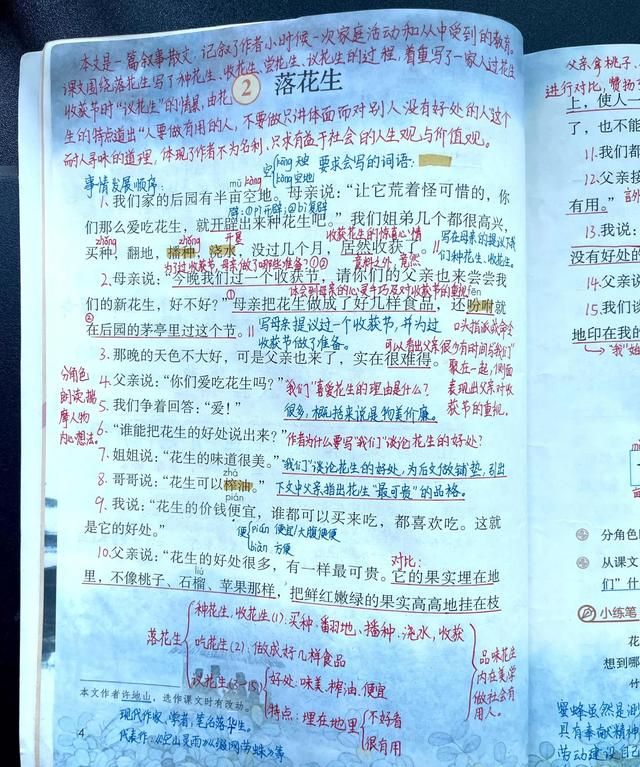 本文是一篇叙事散文,记叙了作者小时候一次家庭活动和从中受到的教育。
课文围绕落花生写了种花生、收花生、尝花生、议花生的过程,着重写了一家人过花生
收获节时“议花生”的情景,由花
2 落花生
生的特点道出“人要做有用的人,不要做只讲体面而对别人没有好处的人”这个
耐人寻味的道理,体现了作者不为名利,只求有益于社会的人生观与价值观。
空 kòng 天空
kòng 空地
要求会写的词语:
事情发展顺序:
mǔ
1.我们家的后园有半亩空地。母亲说:“让它荒着怪可惜的,你
们那么爱吃花生,就开辟出来种花生吧。”我们姐弟几个都很高兴,
买种,翻地,播种,浇水,没过几个月,居然收获了。
收获花生的惊喜心情
意料之外,竟然
写在母亲的提议下我
们种花生、收花生。
为了过收获节,母亲做了哪些准备?①②
2.母亲说:“今晚我们过一个收获节,请你们的父亲也来尝尝我
们的新花生,好不好?”母亲把花生做成了好几样食品,还吩咐就
在后园的茅亭里过这个节。
体会到母亲的心灵手巧及对收获节的重视
写母亲提议过一个收获节,并为过
收获节做了准备。
口头指派或命令
3.那晚的天色不大好,可是父亲也来了,实在很难得。
可以看出父亲很少有时间与我们
聚在一起,侧面
表现出父亲对收
获节的重视。
分角色
朗读,揣
摩人物
内心想法。
4.父亲说:“你们爱吃花生吗?”
“我们”喜爱花生的理由是什么?
5.我们争着回答:“爱!”
很多,概括来说是物美价廉。
6.“谁能把花生的好处说出来?”
作者为什么要写“我们”谈论花生的好处?
7.姐姐说:“花生的味道很美。”
“我们”谈论花生的好处,为后文做铺垫,引出
zhà
8.哥哥说:“花生可以榨油。”
下文中父亲指出花生“最可贵”的品格。
pián
9.我说:“花生的价钱便宜,谁都可以买来吃,都喜欢吃。这就
是它的好处。”
便 pián 便宜/大腹便便
biàn 方便
对比:
10.父亲说:“花生的好处很多,有一样最可贵。它的果实埋在地
liú
里,不像桃子、石榴、苹果那样,把鲜红嫩绿的果实高高地挂在枝
落花生
种花生、收花生(1):买种、翻地、播种、浇水,收获
吃花生(2):做成好几样食品
议花生
好处:味美、榨油、便宜
特点:埋在地里
不好看
很有用
品味花生
内在美学
做社会有
用人。
本文作者许地山,选作课文时有改动。
现代作家、学者,笔名落华生。
代表作:《空山灵雨》《缀网劳蛛》等
4
父亲拿桃子、
进行对比,赞扬
上,使人一
了,也不能
11.我们都
12.父亲接
有用。”
13.我说:
没有好处的
14.父亲
15.我们
地印在我的
“我”始
分角色
从课文
们”什
小练笔
花
想到哪
竹
蜜蜂虽然是
具有奉献精神
劳动建设自己